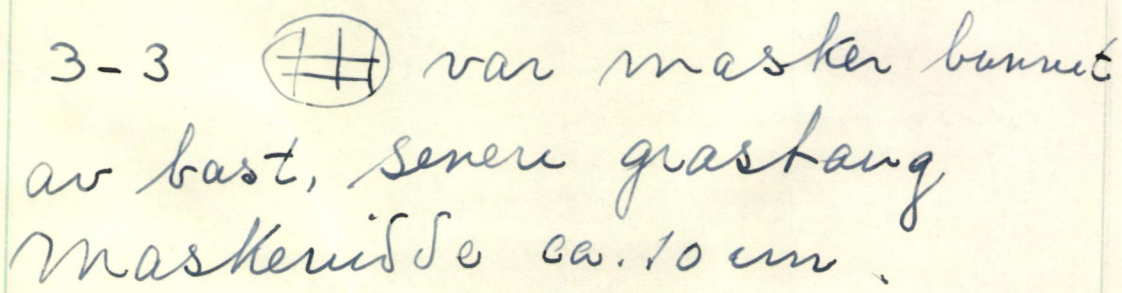 3-3 var masker bunnet
av bast, senere grastaug
Maskevidde ca. 10 cm.